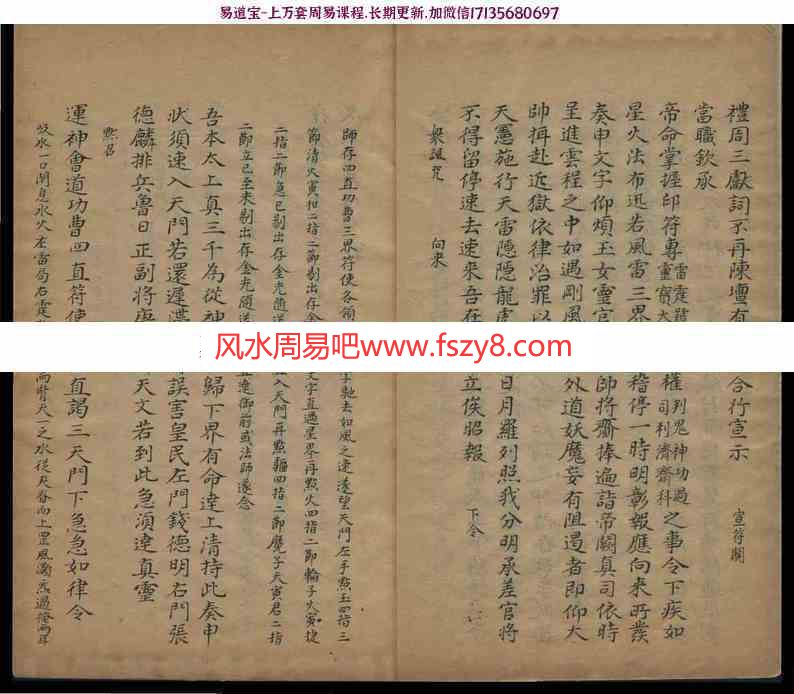 易道宝-上万套周易课程.长期更新.加微信17135680697
禮周三獻詞不再陳壇有 合行宣示 宣符關
當職欽承
帝命掌握印符專 雷霆 靈寶大 權 判鬼神功過 司利濟齋科 之事令下疾如
星火法布迅若風雷三界 稽停一時明彰報應向來所發
奏申文字仰煩玉女靈官 師將齋捧遍詣帝闕真司依時
呈進雲程之中如遇剛風 外道妖魔妄有阻遏者即仰大
帥捐赴近獄依律治罪以
天憲施行天雷隱隱龍虎 日月羅列照我分明承差官將
不得留停速去速來吾在 立俟昭報
眾諷咒 向來 下令
師存四直功曹三界符使各領 字馳去如風之速遙望天門左手點玉四指三
節清火寅和二指二節剔出存金 文字直過星 再點火四指二節輪子火寅捷
二指二節急已剔出存金光隨送 入天門再點輻四指二節魔子天寅君二指
二節立已至未剔出存金光隨送 達御前或法師遂念
吾本太上真三千為從神 歸下界有命達上清持此奏申
狀須速入天門若還遲滯 誤害皇民左門錢德明右門張
德麟排兵魯日正副將唐 天文若到此急須達真靈
默召
運神會道功曹四直符使 直謁三天門下急急如律令
吸水一口閉息水火左雷局右霆 兩臂天一之水從天谷向上罡風
风水周易吧www.fszy8.com